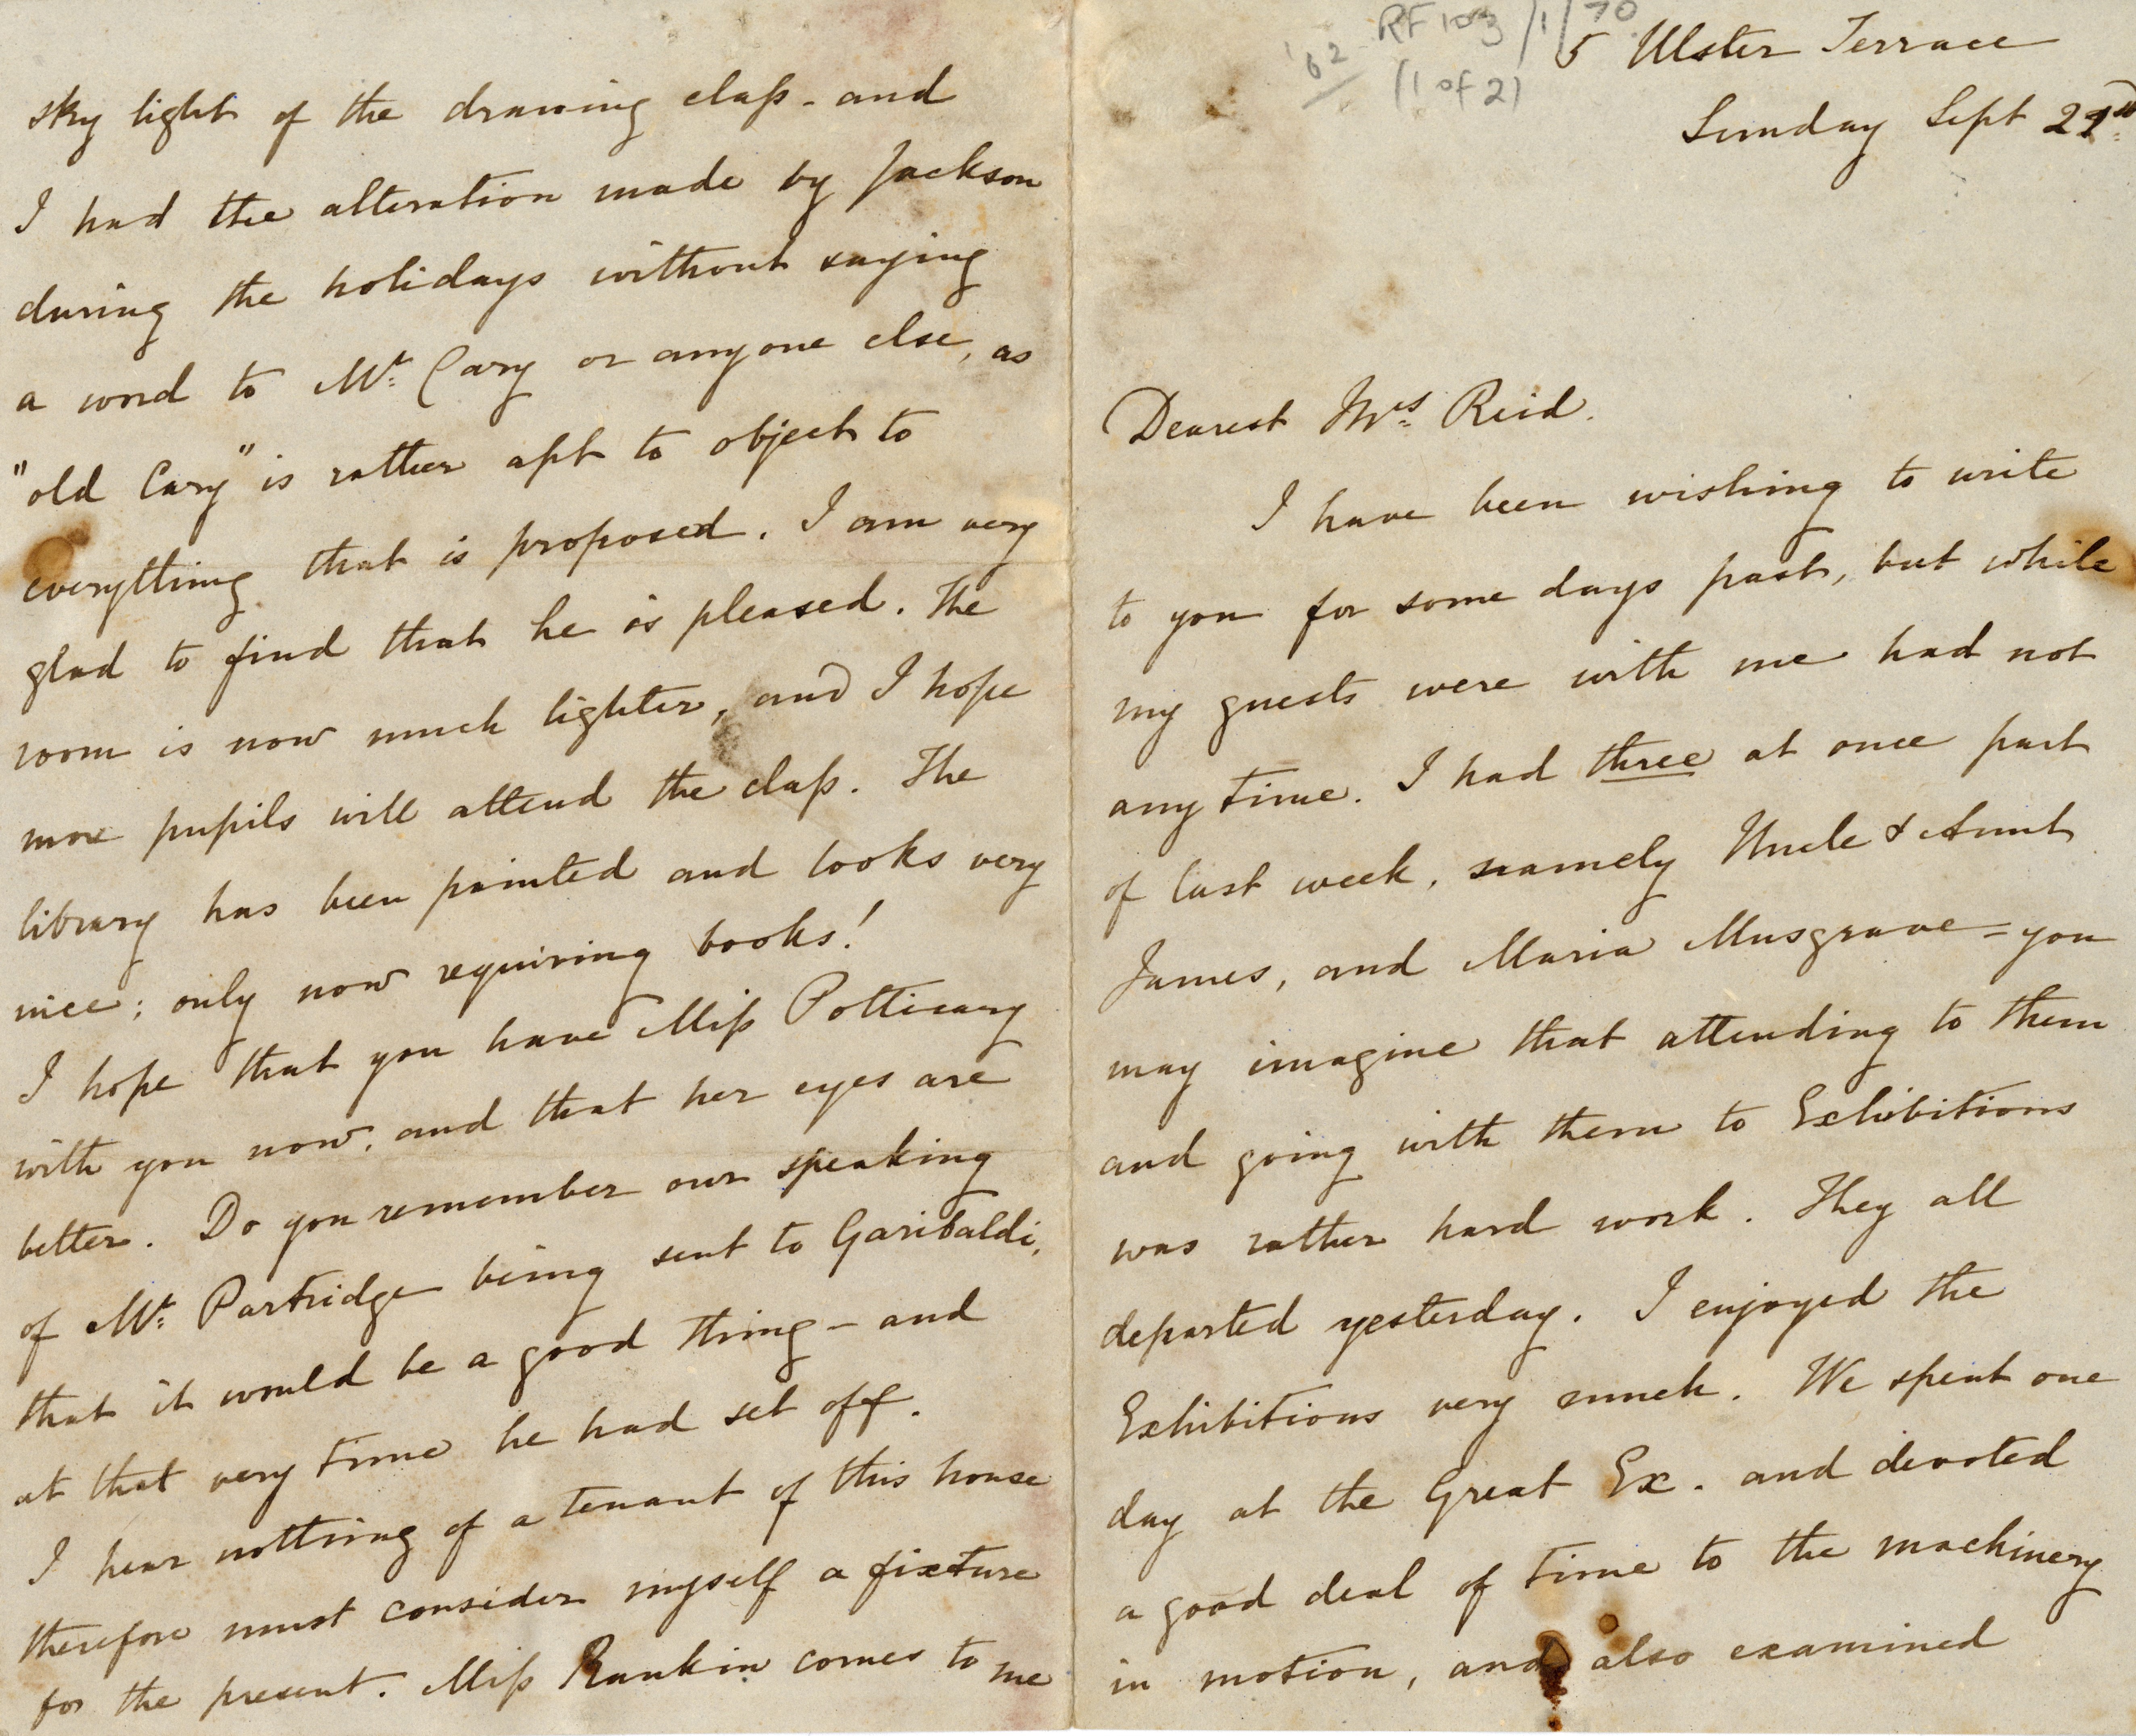 '62 RF 103/1/70
(1 of 2)
5 Ulster Terrace
Sunday Sept
Dearest Mrs. Reid.
I have been wishing to write
to you for some days past, but while
my guests were with me had not
any time. I had three at once part
of last week, namely Uncle & Aunt
James, and Maria Musgrave = you
may imagine that attending to them
and going with them to Exhibitions
was rather hard work. They all
departed yesterday. I enjoyed the
Exhibitions very much. We spent one
day at the Great Ex. and devoted
a good deal of time to the machinery
in motion, and also examined
sky light of the drawing claſs - and
I had the alteration made by Jackson
during the holidays without saying
a word to Mr: Cary or anyone else, as
"old Cary" is rather apt to object to
everything that is proposed. I am very
glad to find that he is pleased. The
room is now much lighter, and I hope
more pupils will attend the claſs. The
library has been painted and looks very
nice; only now requiring books!
I hope that you have Miſs Potticary
with you now, and that her eyes are
better. Do you remember our speaking
of Mr: Partridge being sent to Garibaldi,
that it would be a good thing - and
at that very time he had set off.
I hear nothing of a tenant of this house
therefore must consider myself a fixture
for the present. Miſs Rankin comes to me